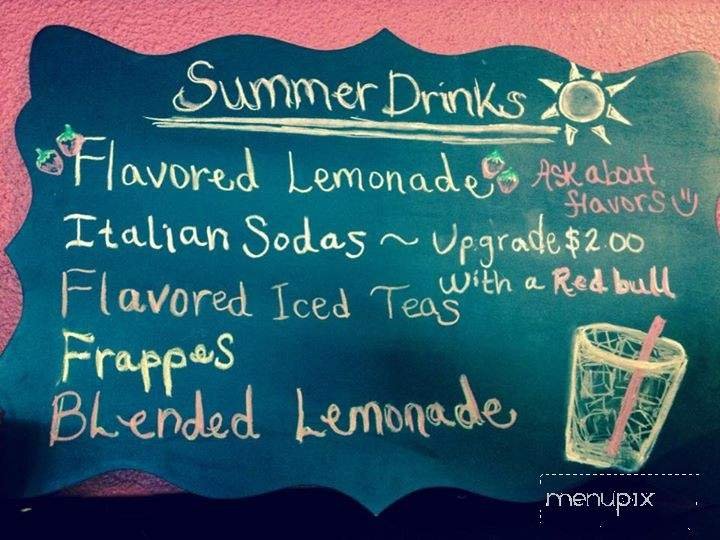 Summer Drinks
Flavored Lemonade
Ask about
flavors
Italian Sodas ~ Upgrade $2.00
with a Redbull
Flavored Iced Teas
Frappes
Blended Lemonade
menupix